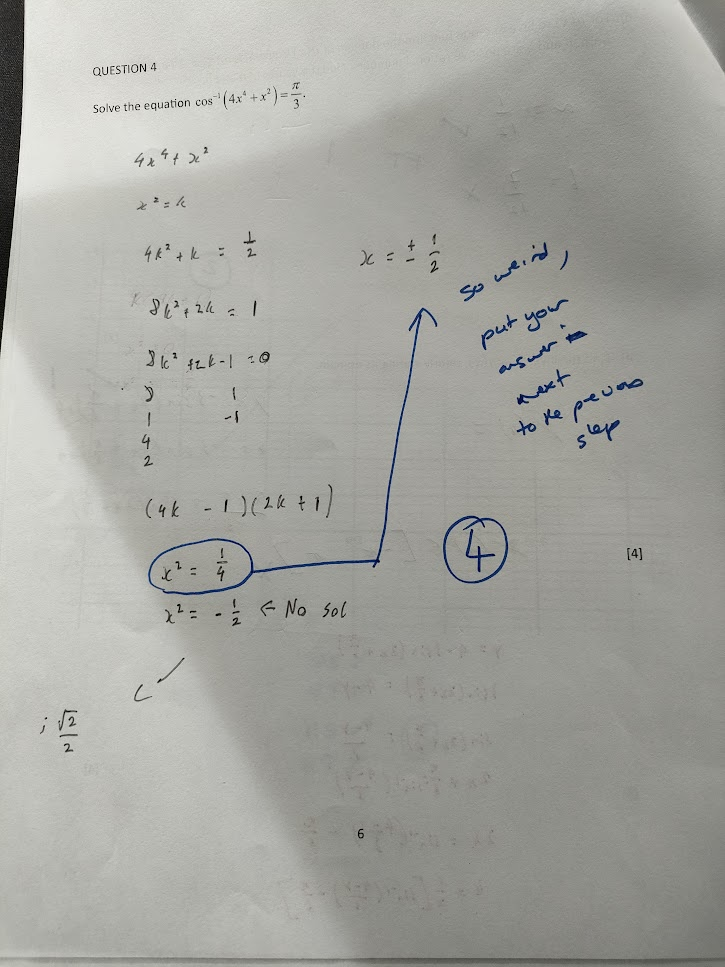 QUESTION 4
Solve the equation cos⁻¹(4x⁴ + x²) = π/3.
4x⁴ + x²
x² = k
4k² + k = 1/2
8k² + 2k = 1
8k² + 2k - 1 = 0
8 1
1 -1
4
2
(4k - 1)(2k + 1)
x² = 1/4
x² = - 1/2 ← No sol
x = ± 1/2
so weird,
put your
answer
next
to the previous
step
4
[4]
; √2/2
6